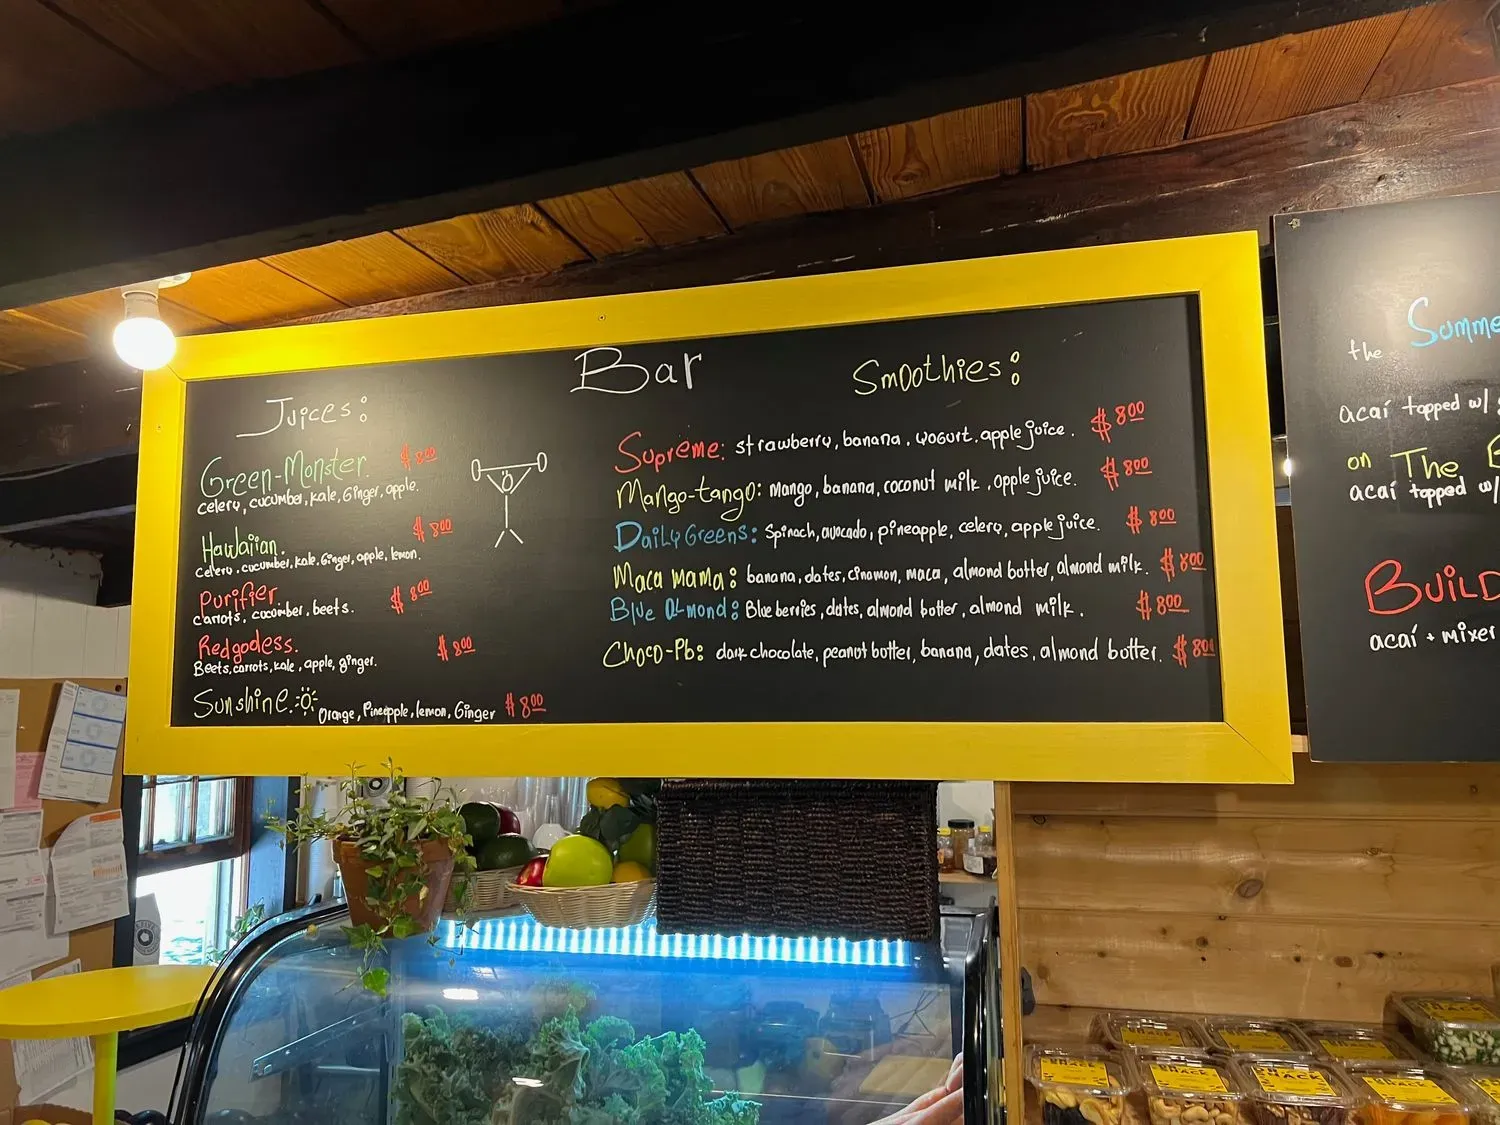 Bar
Juices:
Green-Monster. $8.00
celery, cucumber, kale, Ginger, apple.
Hawaiian. $8.00
celery, cucumber, kale, Ginger, apple, lemon.
Purifier $8.00
carrots, cucumber, beets.
Redgodess. $8.00
Beets, carrots, kale, apple, ginger.
Sunshine. Orange, Pineapple, lemon, Ginger $8.00
Smoothies:
Supreme: strawberry, banana, yogurt, apple juice. $8.00
Mango-tango: mango, banana, coconut milk, apple juice. $8.00
Daily Greens: Spinach, avocado, pineapple, celery, apple juice. $8.00
Maca mama: banana, dates, cinamon, maca, almond botter, almond milk. $8.00
Blue Almond: Blue berries, dates, almond botter, almond milk. $8.00
Choco-Pb: dark chocolate, peanut botter, banana, dates, almond butter. $8.00
the Summe
acaí topped w/
on The
acaí topped w/
BUILD
acaí + mixer